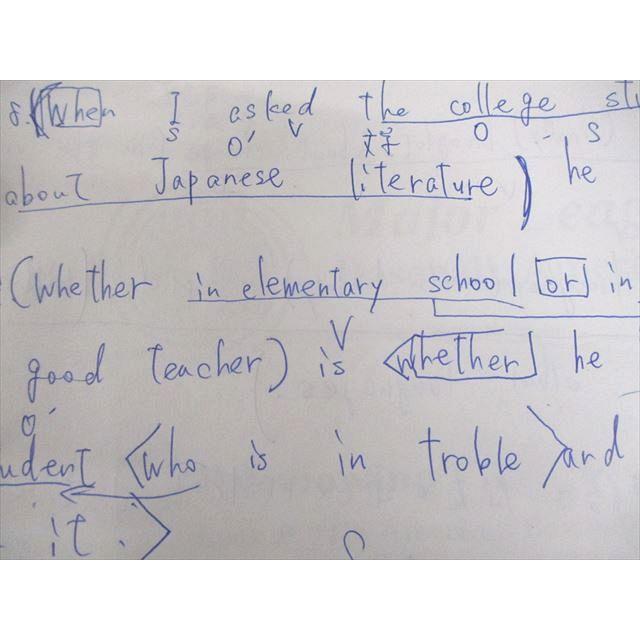 8. (When I asked the college stu
S O' V 好 O S
about Japanese literature) he
(whether in elementary school or in
V
good teacher) is <whether he
O'
udent <who is in troble> and
it.>
S